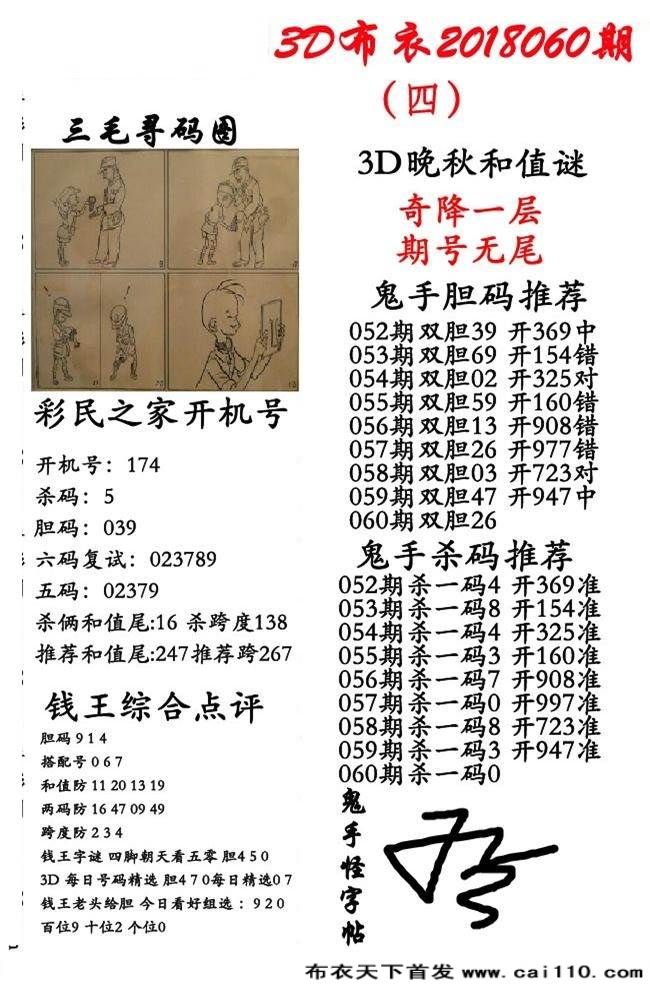 3D布衣2018060期
（四）
三毛寻码图
彩民之家开机号
开机号：174
杀码：5
胆码：039
六码复试：023789
五码：02379
杀俩和值尾:16 杀跨度138
推荐和值尾:247推荐跨267
钱王综合点评
胆码 9 1 4
搭配号 0 6 7
和值防 11 20 13 19
两码防 16 47 09 49
跨度防 2 3 4
钱王字谜 四脚朝天看五零 胆4 5 0
3D 每日号码精选 胆4 7 0每日精选0 7
钱王老头给胆 今日看好组选 ：9 2 0
百位9 十位2 个位0
3D晚秋和值谜
奇降一层
期号无尾
鬼手胆码推荐
052期 双胆39 开369中
053期 双胆69 开154错
054期 双胆02 开325对
055期 双胆59 开160错
056期 双胆13 开908错
057期 双胆26 开977错
058期 双胆03 开723对
059期 双胆47 开947中
060期 双胆26
鬼手杀码推荐
052期 杀一码4 开369准
053期 杀一码8 开154准
054期 杀一码4 开325准
055期 杀一码3 开160准
056期 杀一码7 开908准
057期 杀一码0 开997准
058期 杀一码8 开723准
059期 杀一码3 开947准
060期 杀一码0
鬼手怪字帖
布衣天下首发 www.cai110.com